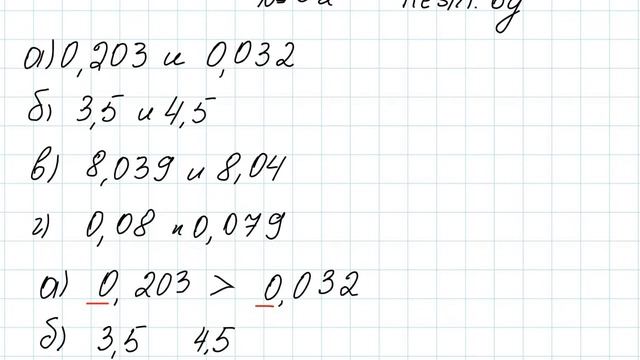 а) 0,203 и 0,032
б) 3,5 и 4,5
в) 8,039 и 8,04
г) 0,08 и 0,079
а) 0,203 > 0,032
б) 3,5 4,5